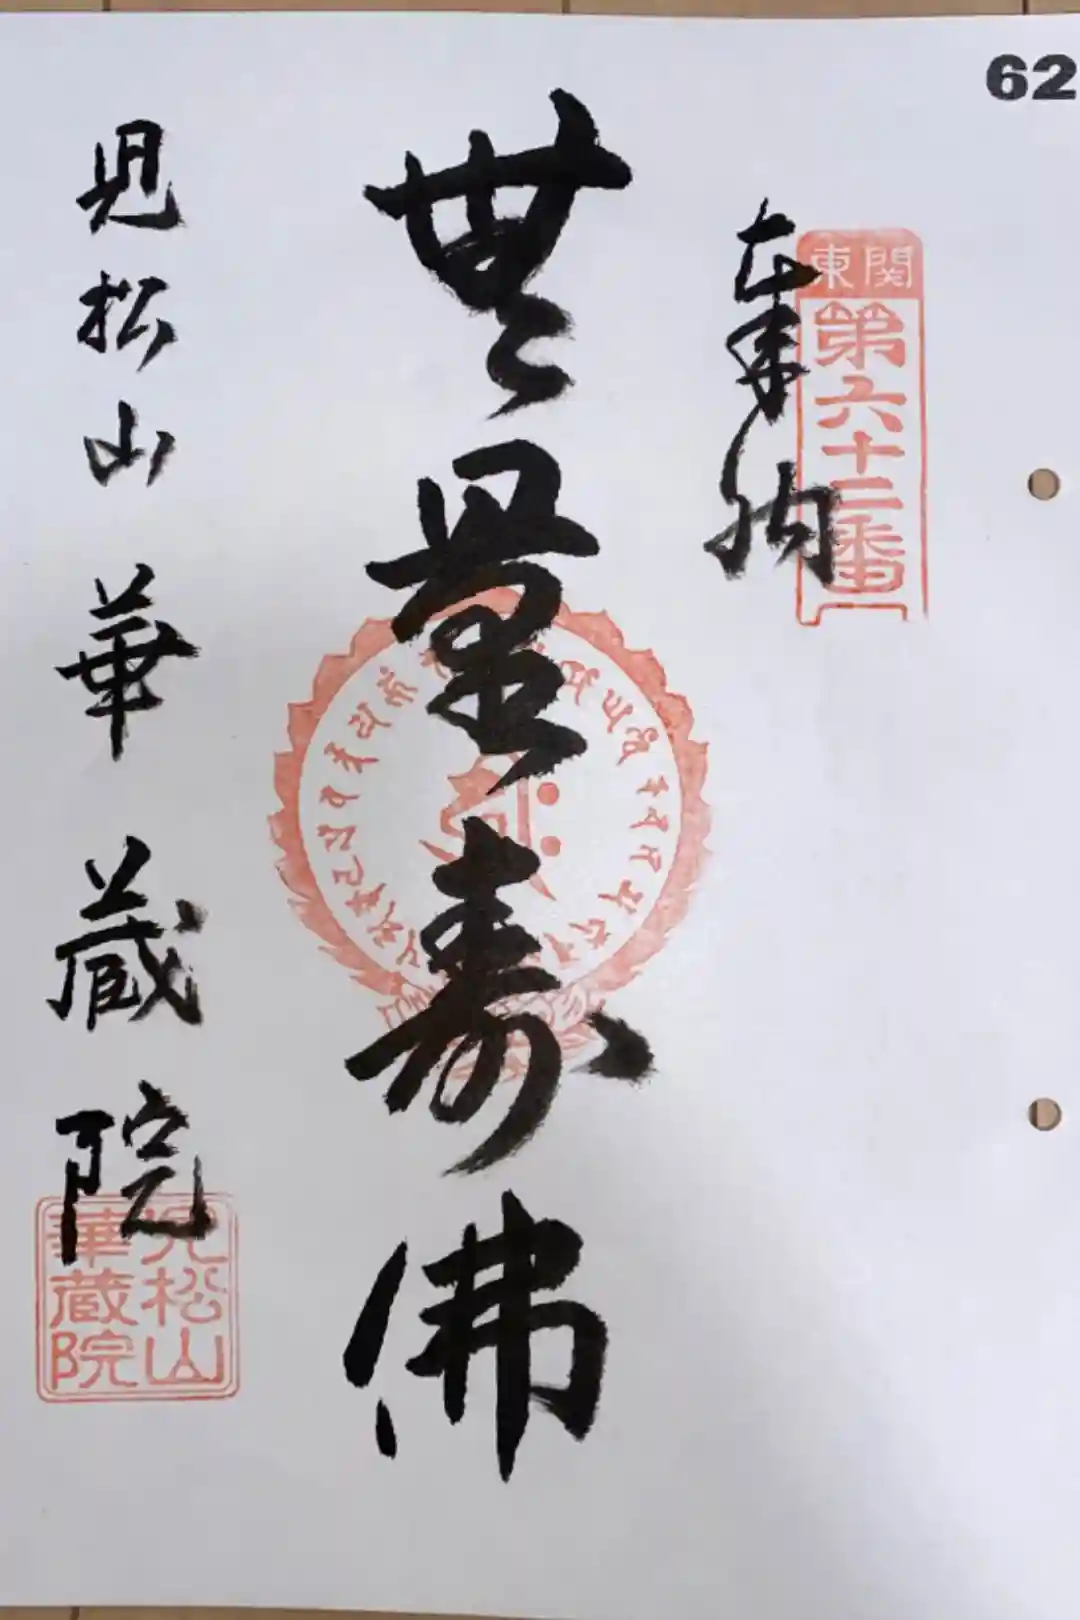 62
奉納
関東
第六十二番
無量寿佛
見松山 華蔵院
見松山
華蔵院